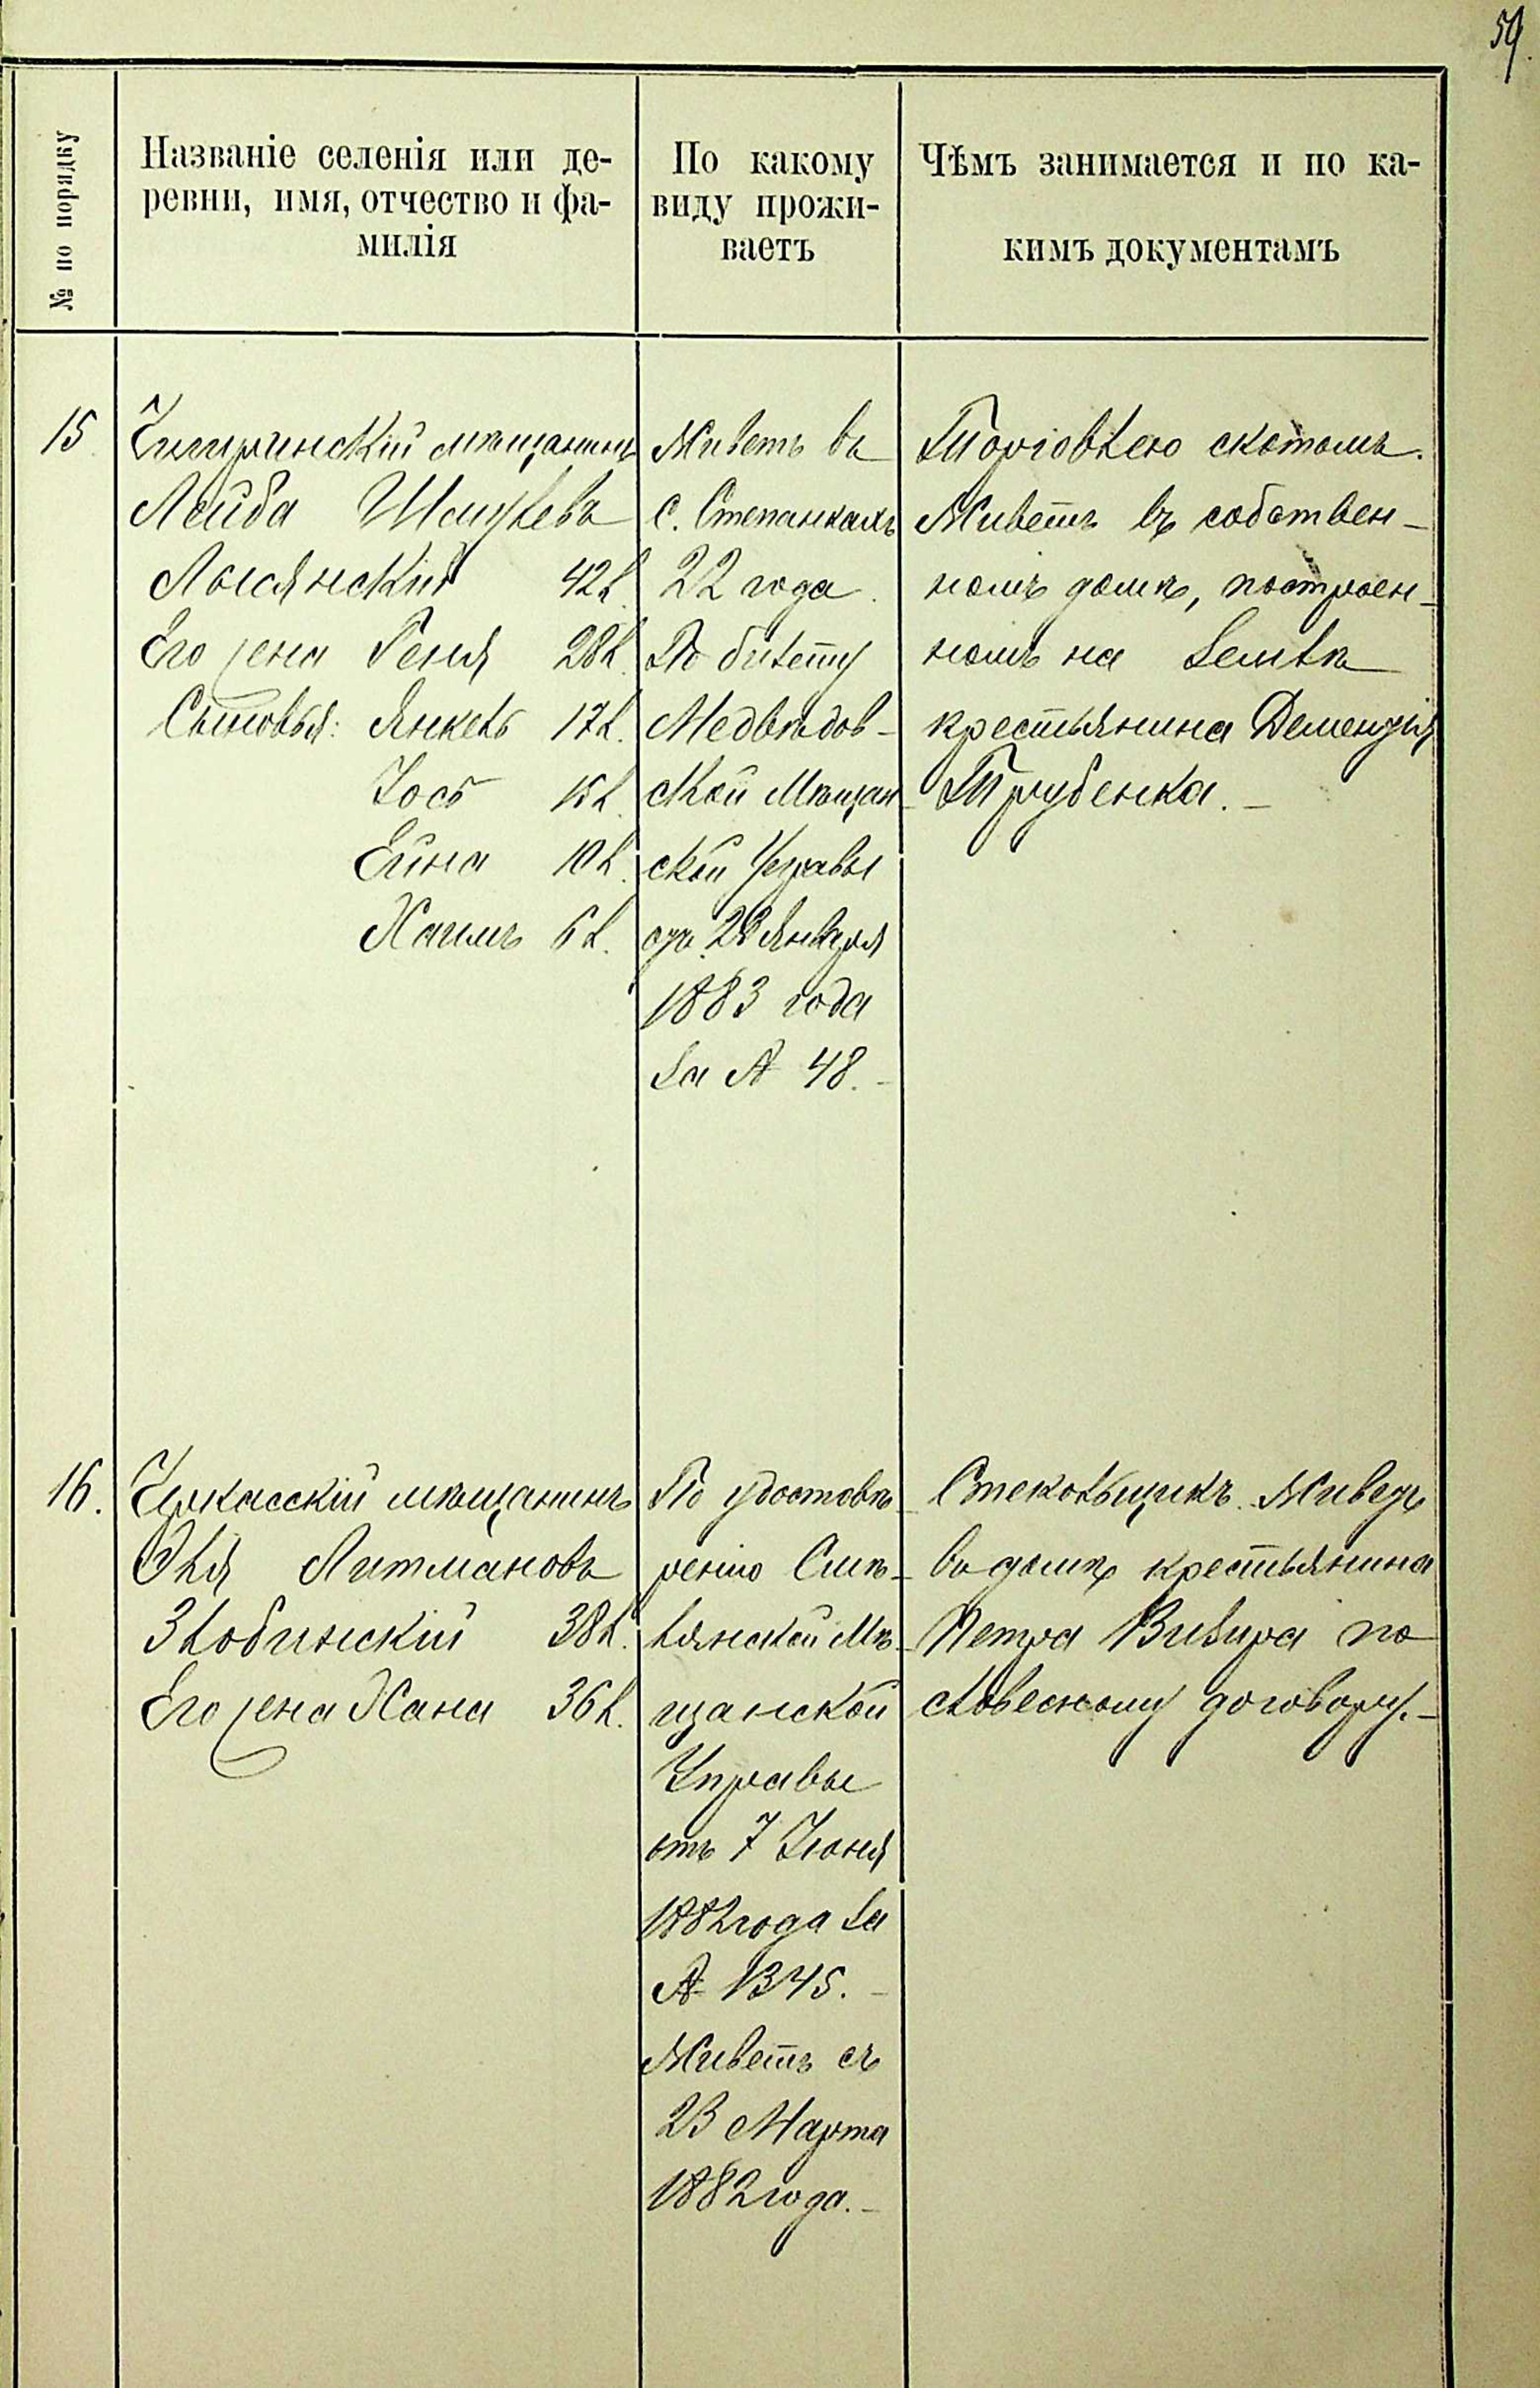 59.
№ по порядку
Названіе селенія или де-
ревни, имя, отчество и фа-
милія
По какому
виду прожи-
ваетъ
Чѣмъ занимается и по ка-
кимъ документамъ
15
Чигиринскій мѣщанинъ
Лейба
Лысянскій 42 л.
Его жена Геня 28 л.
Сыновья: Янкель 17 л.
Іось 15 л.
Ейна 10 л.
Хаимъ 6 л.
Живетъ въ
с. Степанкахъ
22 года.
По билету
Медвѣдов-
ской Мѣщан-
ской Управы
отъ 28 Января
1883 года
за № 48.-
Торговлею скотомъ.
Живетъ въ собствен-
номъ домѣ, построен-
номъ на землѣ
крестьянина Дементія
Трубенка.-
16.
Черкасскій мѣщанинъ
Эля Литмановъ
Злобинскій 38 л.
Его жена Хана 36 л.
По удостовѣ-
ренію Смѣ-
лянской Мѣ-
щанской
Управы
отъ 7 Іюня
1882 года за
№ 1345.-
Живетъ съ
23 Марта
1882 года.-
Стекольщикъ. Живетъ
въ домѣ крестьянина
Петра по
словесному договору.-